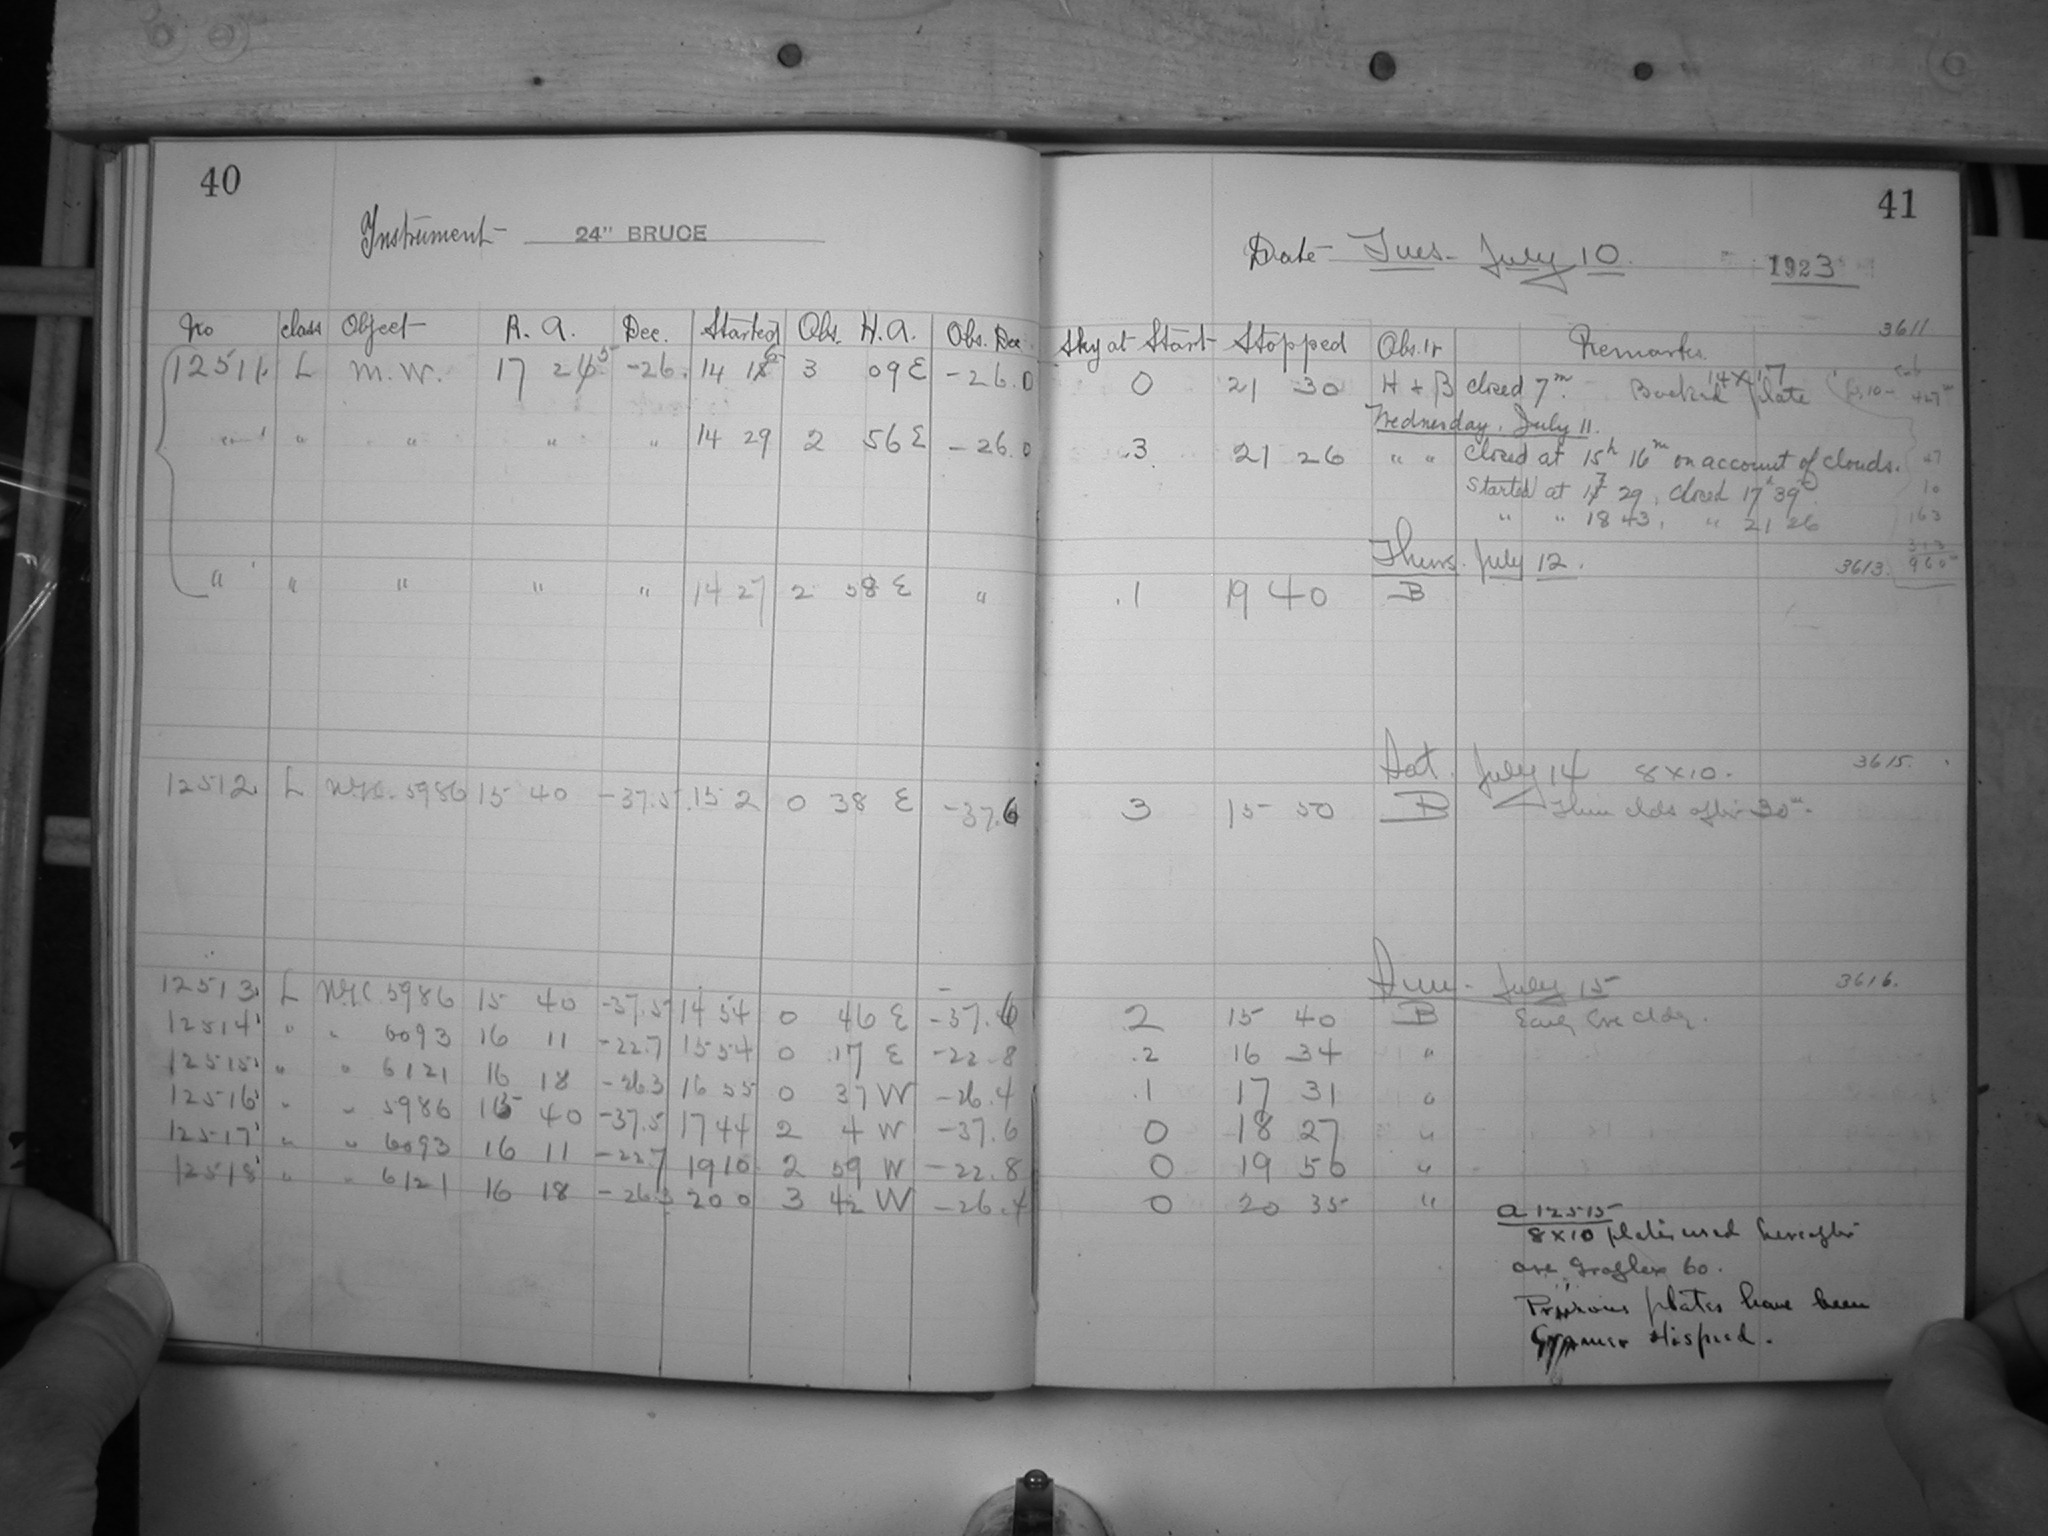 40
Instrument 24" BRUCE
No class Object R. A. Dec. Started Obs. H.A. Obs. Dec.
12511 L M.W. 17 25 -26. 14 16 3 09 E -26.0
" " " " " 14 29 2 56 E -26.0
" " " " " 14 27 2 58 E "
12512 L N.G.C. 5986 15 40 -37.5 15 2 0 38 E -37.6
12513 L N.G.C. 5986 15 40 -37.5 14 54 0 46 E -37.6
12514 " " 6093 16 11 -22.7 15 54 0 17 E -22.8
12515 " " 6121 16 18 -26.3 16 55 0 37 W -26.4
12516 " " 5986 15 40 -37.5 17 44 2 4 W -37.6
12517 " " 6093 16 11 -22.7 19 10 2 59 W -22.8
12518 " " 6121 16 18 -26.3 20 0 3 42 W -26.4
41
Date Tues. July 10. 1923
Sky at Start Stopped Obs.ir Remarks 3611
0 21 30 H & B closed 7m. Backed 14x17 plate
Wednesday, July 11.
.3 21 26 " " Closed at 15h 16m on account of clouds. 47
Started at 17 29, closed 17 39 10
" " 18 43, " 21 26 163
313
Thurs. July 12. 3613. 960m
.1 19 40 B
Sat. July 14 8x10. 3615.
3 15 50 B Thin clds after 30m.
Sun. July 15 3616.
.2 15 40 B Early Eve cldy.
.2 16 34 "
.1 17 31 "
0 18 27 "
0 19 50 "
0 20 35 "
a 12515
8x10 plates used hereafter
are Graflex 60.
Previous plates have been
Cramer HiSpeed.